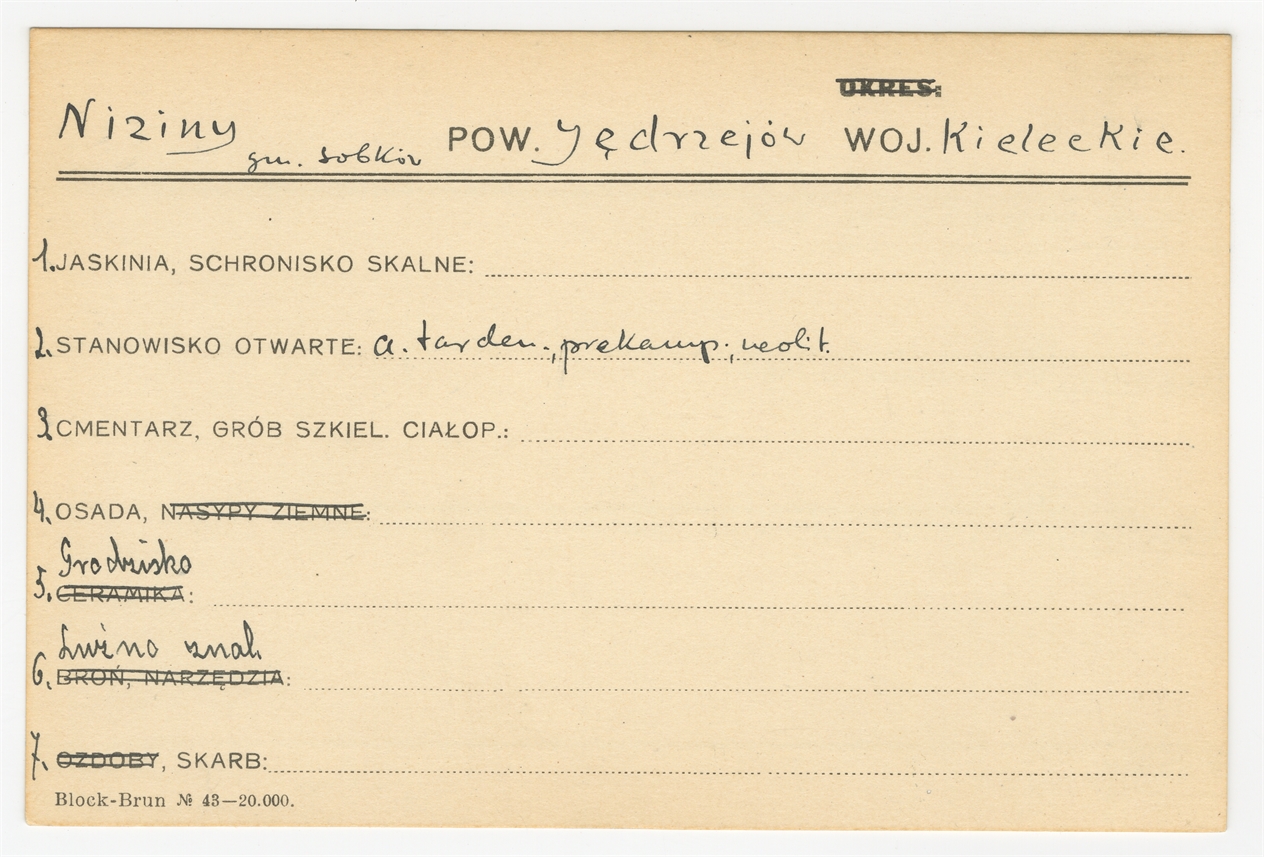 OKRES:
Niziny gm. Sobków POW. Jędrzejów WOJ. Kieleckie.
1. JASKINIA, SCHRONISKO SKALNE:
2. STANOWISKO OTWARTE: a. tarden., prekamp., neolit.
3. CMENTARZ, GRÓB SZKIEL. CIAŁOP.:
4. OSADA, NASYPY ZIEMNE:
Grodzisko
5. CERAMIKA:
Luźno znal.
6. BROŃ, NARZĘDZIA:
7. OZDOBY, SKARB:
Block-Brun № 43—20.000.